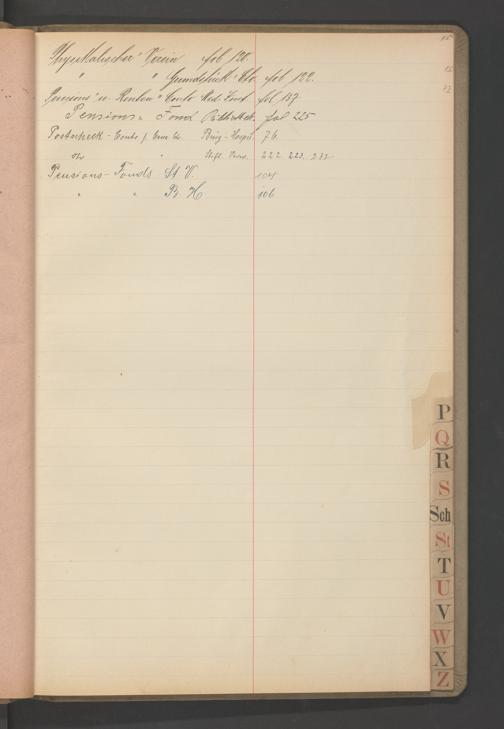 Physikalischer Verein fol 120.
" " Grundstück Cto fol 122.
Pensions u. Renten Conto fol 137
Pensions Fond Bibliothek. fol 225
Postscheck-Conto f. Bürg-Hospit. 76.
" Stift. 222. 223. 232
Pensions-Fonds St V. 104
" " B. H 106
P
Q
R
S
Sch
St
T
U
V
W
X
Z